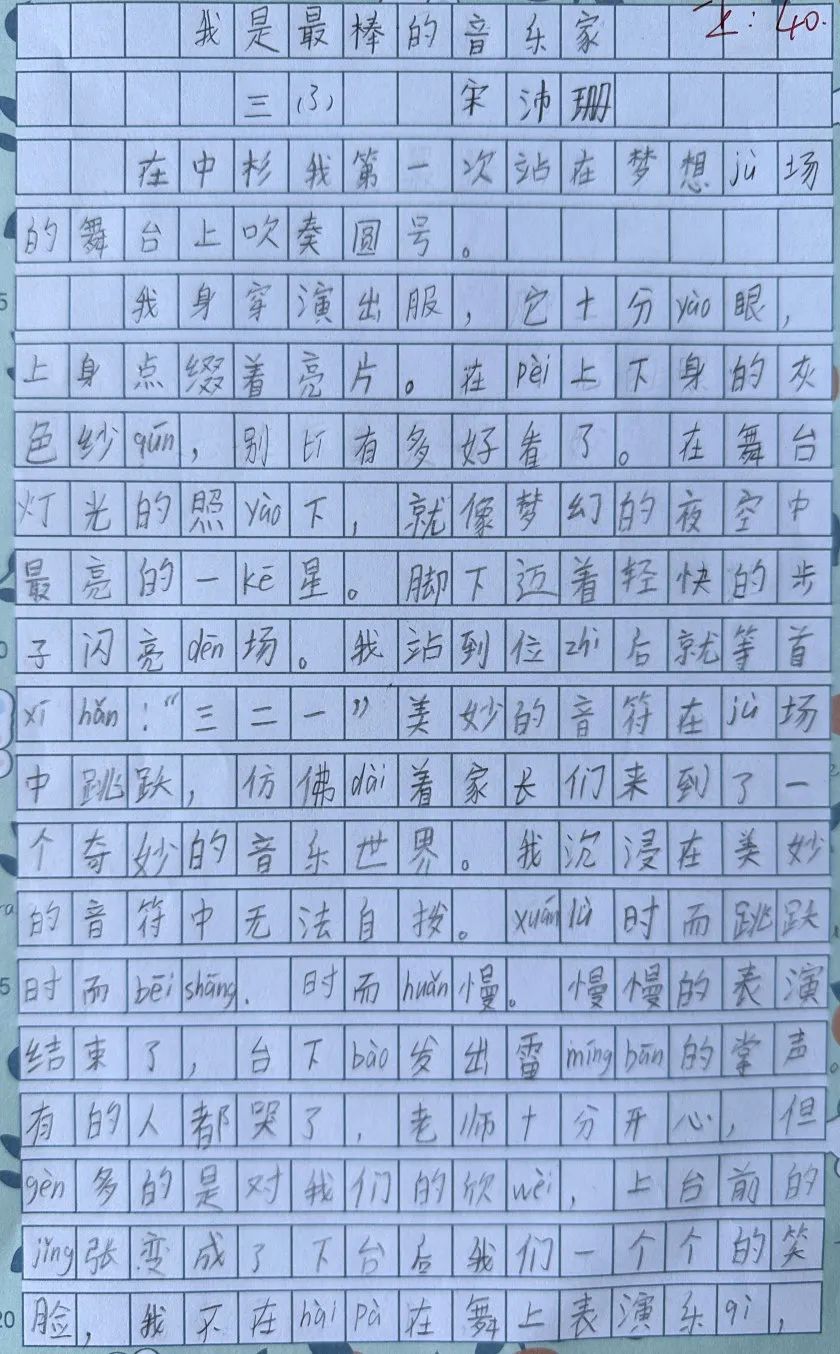 我是最棒的音乐家 Z:40.
三(3) 宋沛珊
在中杉我第一次站在梦想jù场
的舞台上吹奏圆号。
我身穿演出服，它十分yào眼，
上身点缀着亮片。在pèi上下身的灰
色纱qún，别旷有多好看了。在舞台
灯光的照yào下，就像梦幻的夜空中
最亮的一kē星。脚下迈着轻快的步
子闪亮dēn场。我站到位zhì后就等首
xí hǎn：“三二一”美妙的音符在jù场
中跳跃，仿佛dài着家长们来到了一
个奇妙的音乐世界。我沉浸在美妙
的音符中无法自拨。xuán lǜ时而跳跃
时而bēi shāng. 时而huǎn慢。慢慢的表演
结束了，台下bào发出雷míng bān的掌声
有的人都哭了，老师十分开心，但
gèn多的是对我们的欣wèi，上台前的
jǐng张变成了下台后我们一个个的笑
脸，我不在hài pà在舞上表演乐qì，